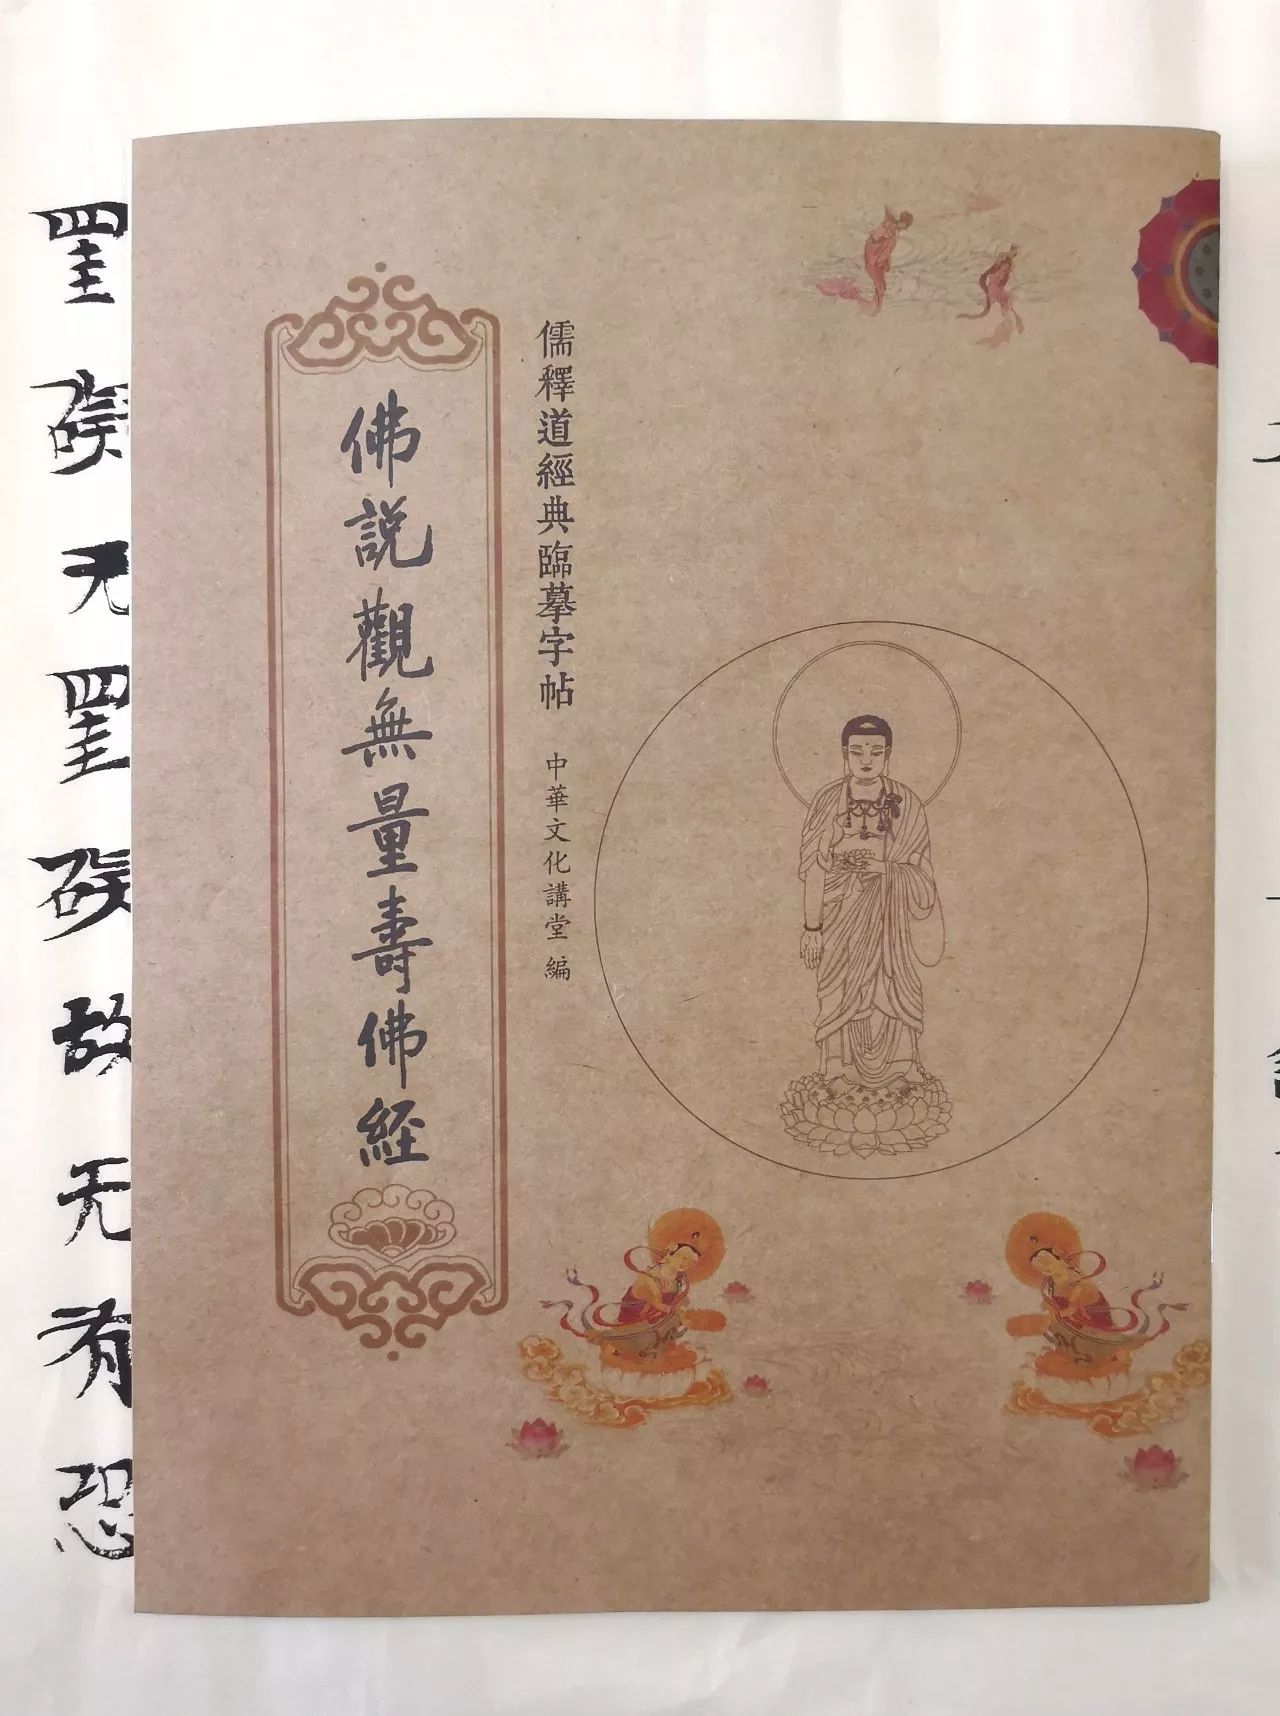 儒釋道經典臨摹字帖 中華文化講堂 編
佛説觀無量壽佛經
罣礙无罣礙故无有恐